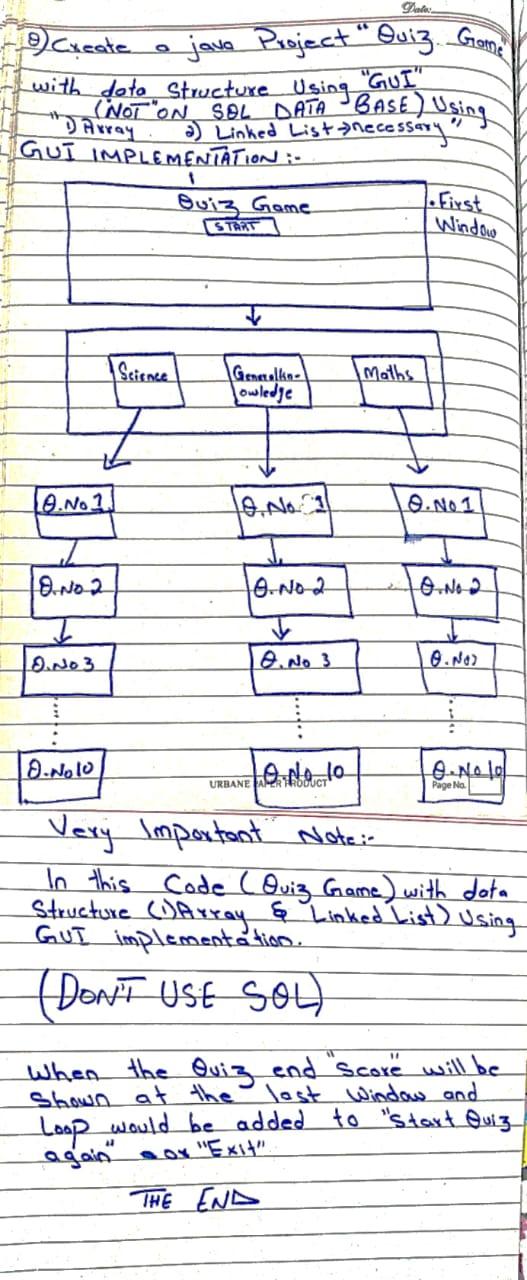 Date:
Q) Create a java Project "Quiz Game"
with data Structure Using "GUI"
(NOT ON SQL DATA BASE) Using
"1) Array 2) Linked List → necessary"
GUI IMPLEMENTATION :-
Quiz Game
START
• First
Window
Science
Generalkn-
owledge
Maths
Q.No 1
Q.No 1
Q.No 1
Q.No 2
Q.No 2
Q.No 2
Q.No 3
Q.No 3
Q.No
Q.No 10
Q.No 10
Q.No 10
URBANE PAPER PRODUCT
Page No.
Very Important Note:-
In this Code (Quiz Game) with data
Structure (1) Array & Linked List) Using
GUI implementation.
(DON'T USE SQL)
When the Quiz end "Score" will be
shown at the last window and
Loop would be added to "Start Quiz
again" or "Exit"
THE END